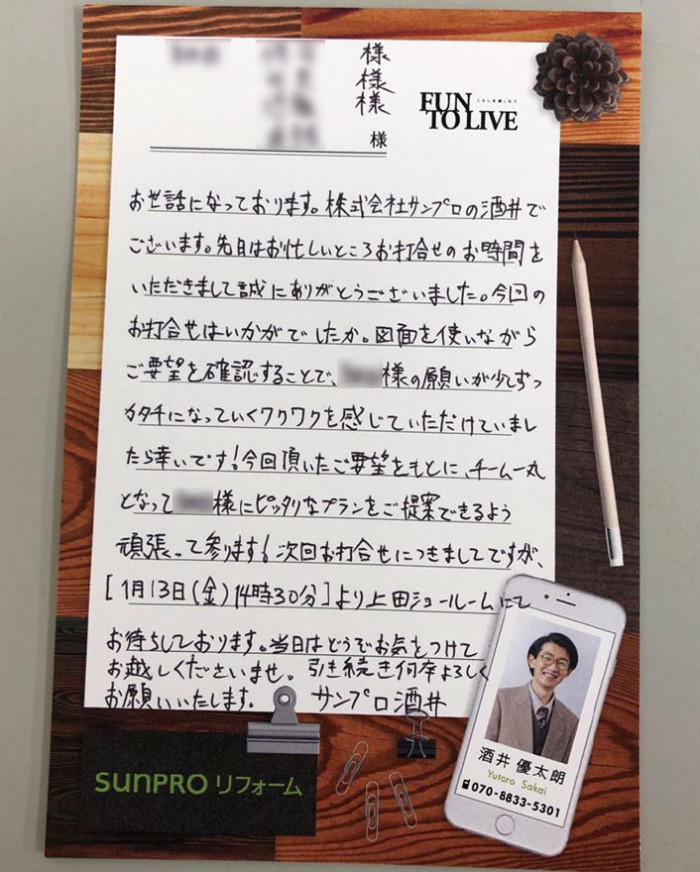 様
様
様
様
くらしを楽しもう
FUN
TO LIVE
お世話になっております。株式会社サンプロの酒井で
ございます。先日はお忙しいところお打合せのお時間を
いただきまして誠にありがとうございました。今回の
お打合せはいかがでしたか。図面を使いながら
ご要望を確認することで、様の願いが少しずつ
カタチになっていくワクワクを感じていただけていまし
たら幸いです!今回頂いたご要望をもとに、チーム一丸
となって様にピッタリなプランをご提案できるよう
頑張って参ります!次回お打合せにつきましてですが、
[1月13日(金)14時30分]より上田ショールームにて
お待ちしております。当日はどうぞお気をつけて
お越しくださいませ。引き続き何卒よろしく
お願いいたします。 サンプロ酒井
sunPRO リフォーム
酒井 優太朗
Yutaro Sakai
070-8833-5301